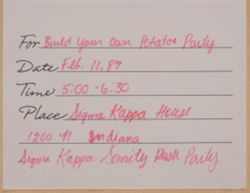 For Build Your Own Potatoe Party
Date Feb. 11, 87
Time 5:00 - 6:30
Place Sigma Kappa House
1200 N. Indiana
Sigma Kappa Sorority Rush Party